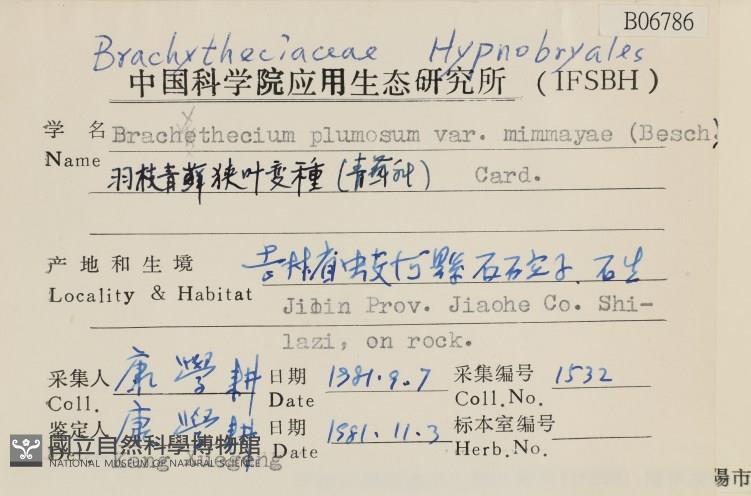 B06786
Brachytheciaceae Hypnobryales
中国科学院应用生态研究所 (IFSBH)
学 名 Brachythecium plumosum var. mimmayae (Besch.)
Name 羽枝青藓狭叶变種 (青藓科) Card.
产地和生境 吉林省蛟河縣 石生
Locality & Habitat Jilin Prov. Jiaohe Co. Shi-
lazi, on rock.
采集人 康學耕 日期 1981.9.7 采集编号 1532
Coll. Date Coll.No.
鉴定人 康學耕 日期 1981.11.3 标本室编号
Det. Kang Xuegeng Date Herb.No.
國立自然科學博物館
NATIONAL MUSEUM OF NATURAL SCIENCE
陽市